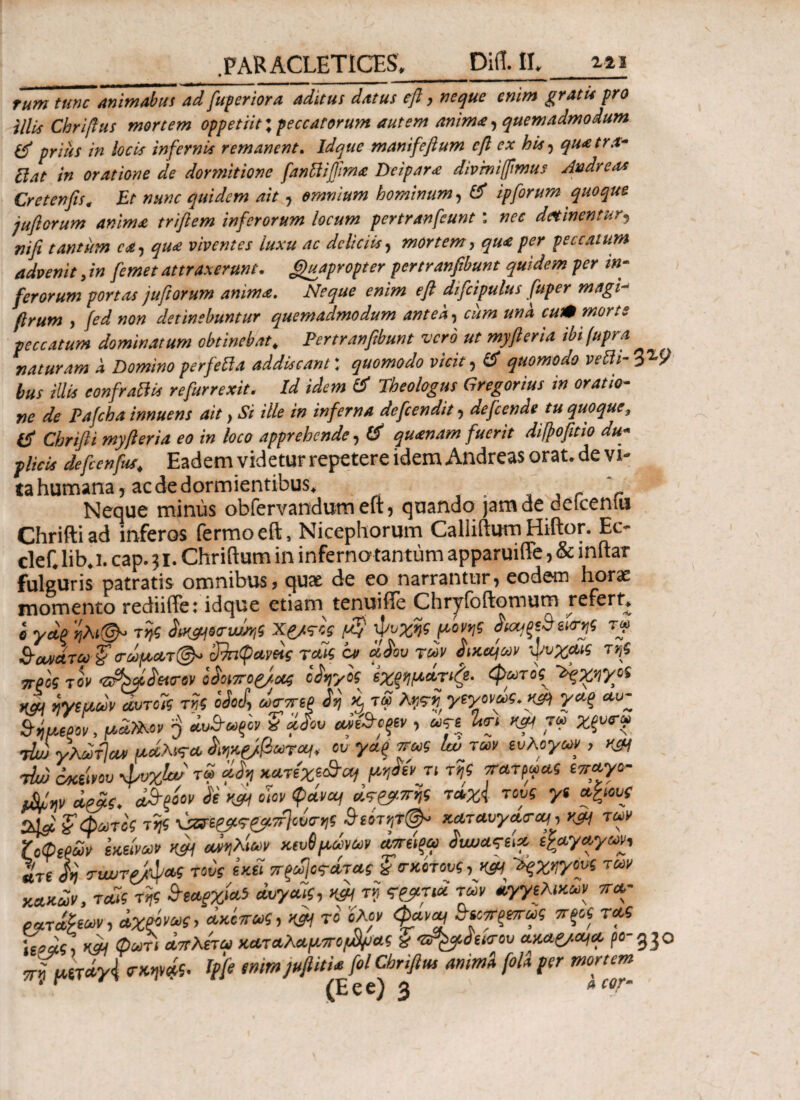 .PARACLETICES, Diff. II. 221
rum tunc animabus ad superiora aditus datus est, neque enim gratis pro
illis Christus mortem oppetiit; peccatorum autem animæ, quemadmodum
& prius in locis infernis remanent. Idque manifestum est ex his, quæ tra-
ctat in oratione de dormitione sanctissimæ Deiparæ divinissimus Andreas
Cretensis. Et nunc quidem ait, omnium hominum, & ipsorum quoque
justorum animæ tristem inferorum locum pertranseunt: nec detinentur,
nisi tantum ea, quæ viventes luxu ac deliciis, mortem, quæ per peccatum
advenit, in semet attraxerunt. Quapropter pertransibunt quidem per in-
ferorum portas justorum animæ. Neque enim est discipulus super magi-
strum, sed non detinebuntur quemadmodum antea, cum una cum morte
peccatum dominatum obtinebat. Pertransibunt vero ut mysteria ibi supra
naturam à Domino perfecta addiscant: quomodo vicit, & quomodo vecti- 329
bus illis confractis resurrexit. Id idem & Theologus Gregorius in oratio-
ne de Pascha innuens ait, Si ille in inferna descendit, descende tu quoque,
& Christi mysteria eo in loco apprehende, & quænam fuerit dispositio du-
plicis descensus. Eadem videtur repetere idem Andreas orat. de vi-
ta humana, ac de dormientibus.
Neque minùs observandum est, quando jam de descensu
Christi ad inferos sermo est, Nicephorum Callistum Histor. Ec-
cles. lib. 1. cap. 31. Christum in inferno tantùm apparuisse, & instar
fulguris patratis omnibus, quæ de eo narrantur, eodem horæ
momento rediisse: idque etiam tenuisse Chrysostomum refert.
ὁ γὰρ ἥλιος τῆς δικαιοσύνης Χριστὸς μετὰ ψυχῆς μόνης διαιρεθείσης τῷ
θανάτῳ τοῦ σώματος ἐπιφανεὶς ταῖς ἐν ᾅδου τῶν δικαίων ψυχαῖς τῆς
πρὸς τὸν παράδεισον ὁδοιπορίας ὁδηγὸς ἐχρημάτιζε. φωτὸς ἀρχηγὸς
καὶ ἡγεμὼν αὐτοῖς τῆς ὁδοῦ, ὥσπερ δὴ καὶ τῷ λῃστῇ γεγονώς. καὶ γὰρ αὐ-
θήμερον, μᾶλλον δὲ αὐθωρὸν τοῦ ᾅδου ἀνέθορεν, ὥς τέ τισι καὶ τῷ χρυσῷ
τὴν γλῶτταν μάλιστα διηκρίβωται. οὐ γάρ πως ἦν τῶν εὐλόγων, καὶ
τὴν ἐκείνου ψυχὴν τῷ ᾅδῃ κατέχεσθαι μηδέν τι τῆς πατρῴας ἐπαγο-
μένην ἀρᾶς. ἀθρόον δὲ καὶ οἷον φάναι ἀστραπῆς τάχει τούς γε ἀξίους
διὰ τοῦ φωτὸς τῆς ὑπεραστραπτούσης θεότητος καταυγάσαι, καὶ τῶν
ζοφερῶν ἐκείνων καὶ ἀνηλίων κευθμώνων ἀπείρῳ δυναστείᾳ ἐξαγαγών,
ἅτε δὴ συντρίψας τοὺς ἐκεῖ πρωτοστάτας τοῦ σκότους, καὶ ἀρχηγοὺς τῶν
κακῶν, ταῖς τῆς θεαρχίας αὐγαῖς, καὶ τῇ στρατιᾷ τῶν ἀγγελικῶν πα-
ρατάξεων, ἀχρόνως, ἀκόπως, καὶ τὸ ὅλον φάναι θεοπρεπῶς πρὸς τὰς
ἱερὰς, καὶ φωτὶ ἀπλέτῳ καταλαμπομένας τοῦ παραδείσου ἀκαριαίᾳ ῥο- 330
πῇ μετάγει σκηνάς. Ipse enim justitiæ sol Christus animâ solâ per mortem
(Eee) 3 à cor-